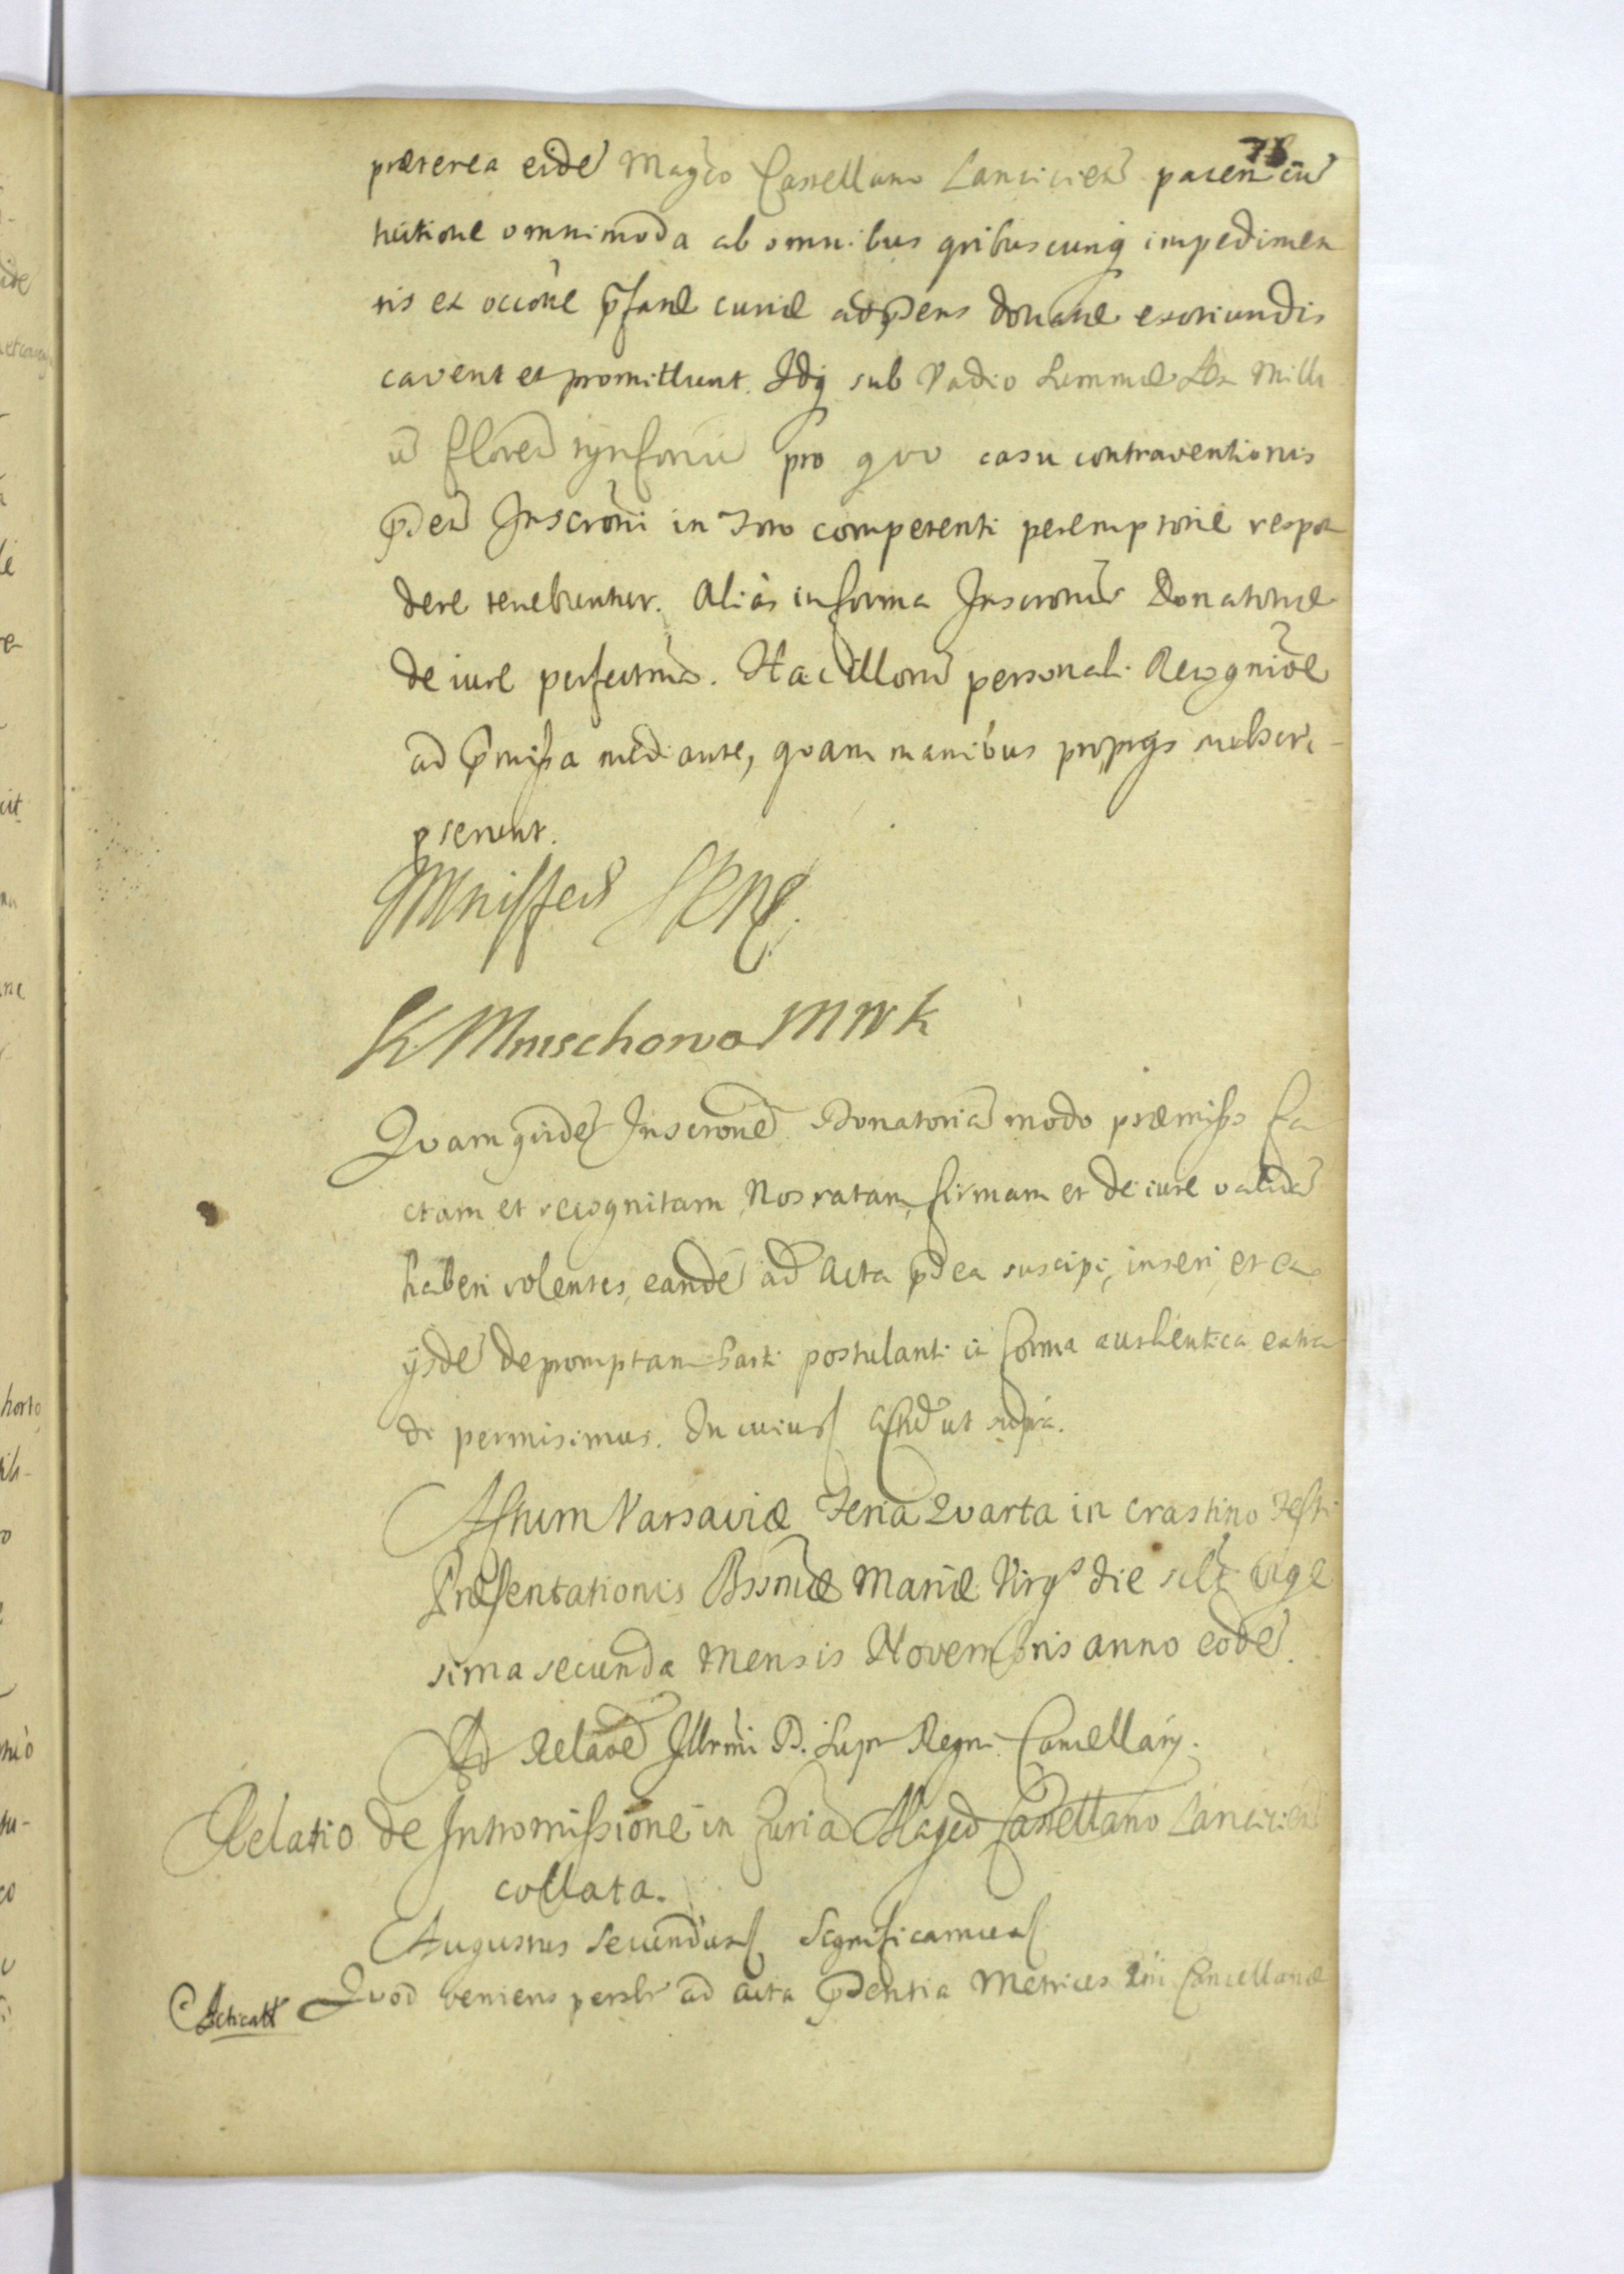 78
præterea eidē Magco Castellano Lanciciēn pacem cū
tuitione omnimoda ab omnibus qvibuscunq impedimen
tis ex occōne pfatæ curiæ ad pens donatæ exoriundis
cavent et promittunt. Idq sub Vadio Summæ Milli
ū florēn pro quo casu contraventionis
pden Inscrōni in Foro competenti peremptorie respon
dere tenebuntur. Aliàs in forma Inscronis Donatoriæ
de iure perfectma. Hac illorū personali Recogniōe
ad pmissa mediante, quam manibus proprys subscri-
pserunt.
Mniszech
K Mnischowa M W K
Qvam qvidē Inscronē Donatoriā modo præmisso fa
ctam et recognitam, Nos ratam, firmam et de iure validā
haberi volentes, eandē ad Acta pdca suscipi, inseri, et ex
ijsdē depromptam Parti postulanti in forma authentica extra
di permisimus. In cuius ut supra.
Actum Varsaviæ Feria Qvarta in crastino Festi
Præsentationis Bssmæ Mariæ Virgs die sclt vige
sima secunda Mensis Novembris anno eodē.
Ad Relaōē Illrmi D. Supr Regni Cancellarij.
Relatio de Intromissione in Curiā Magco Castellano Lanciciēn
collata.
Augustus Secundus Significamus
Acticatt Qvod veniens persltr ad acta pdentia Metrices Cancellariæ